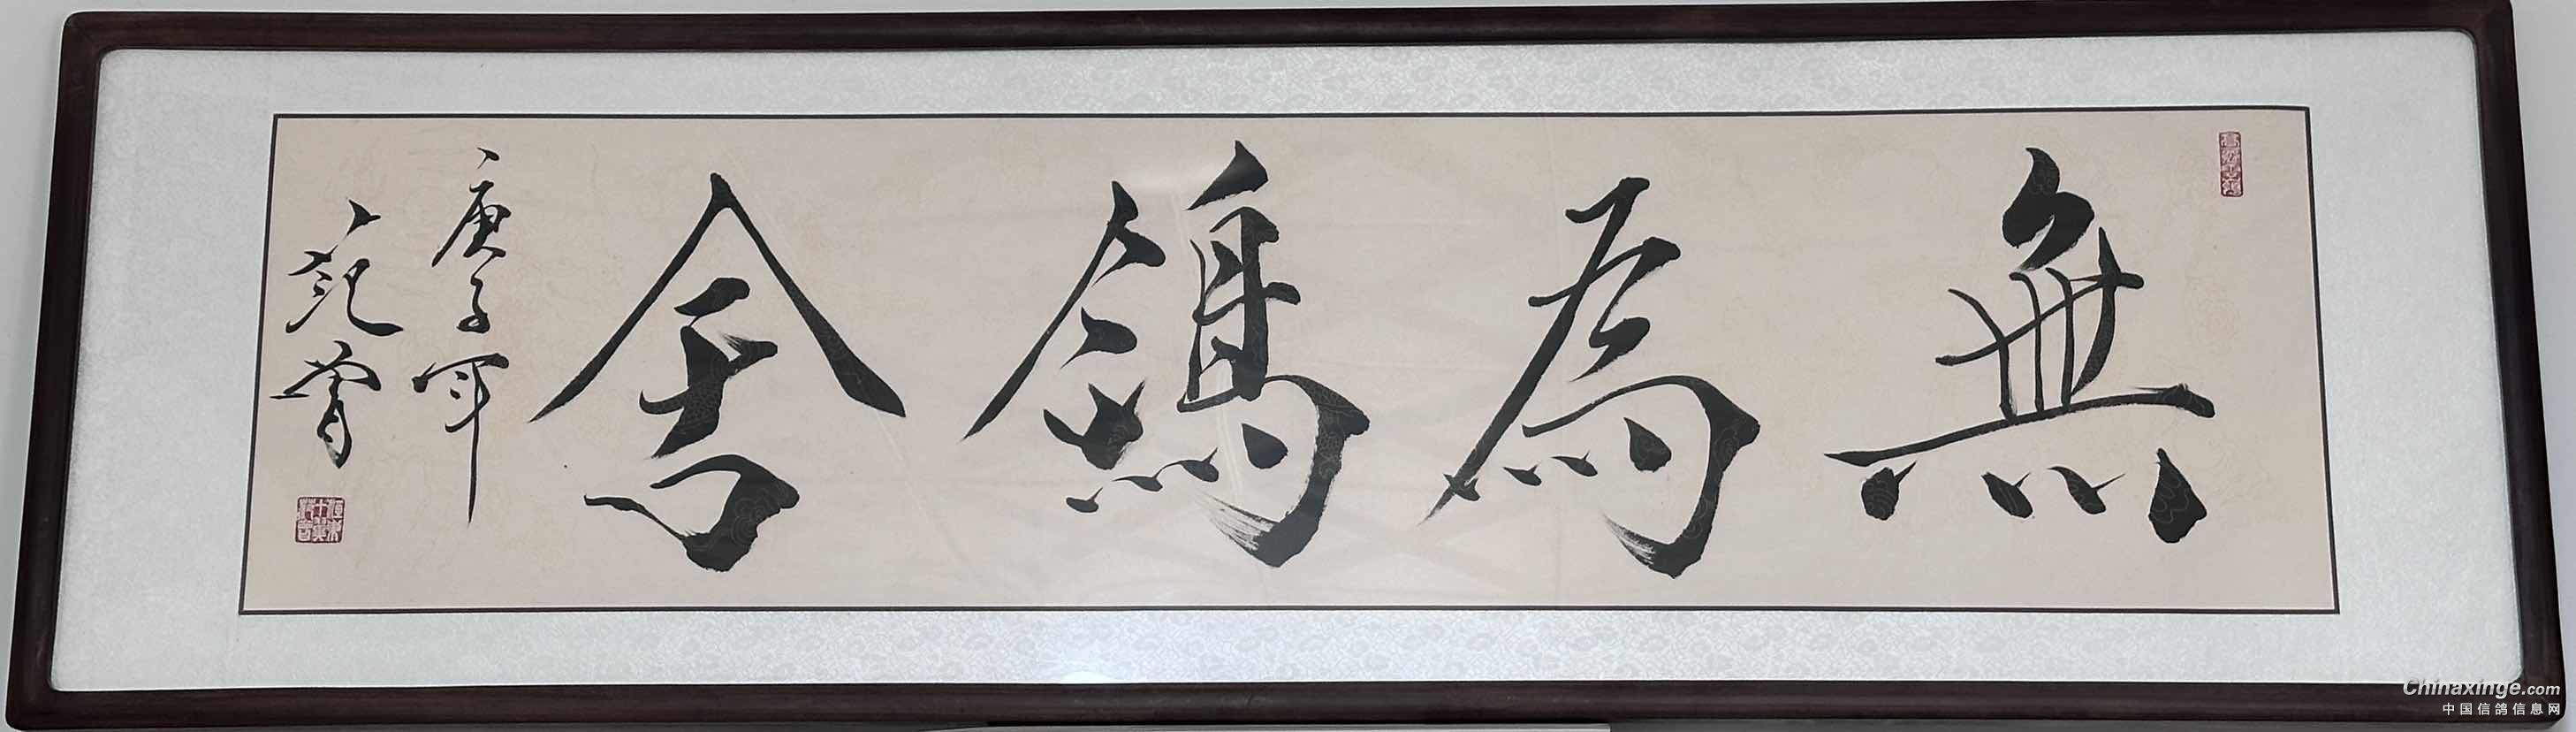 無為鴿舍
庚子年
范曾
Chinaxinge.com
中国信鸽信息网